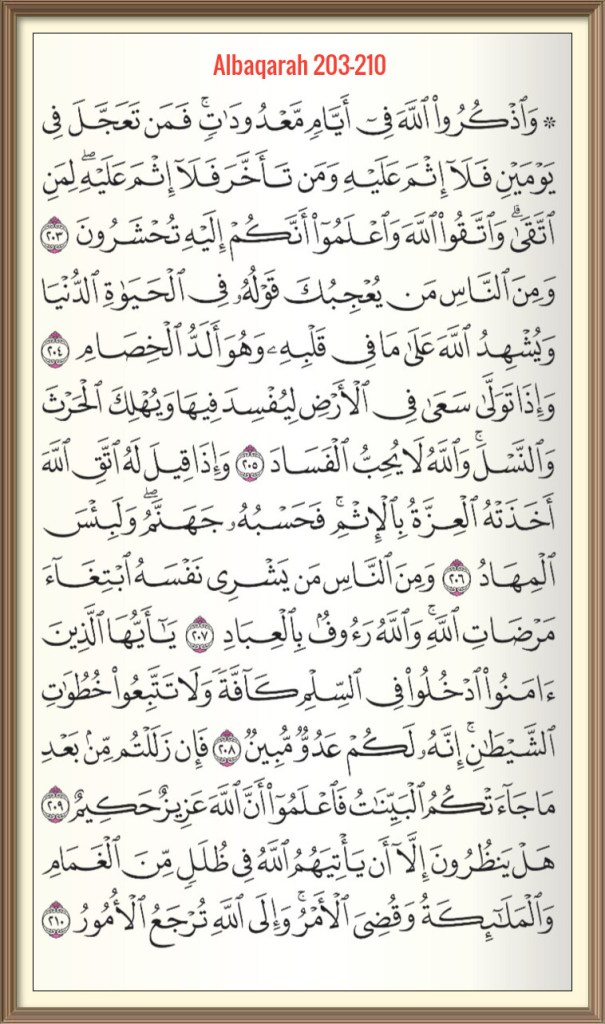 Albaqarah 203-210
۞ وَٱذْكُرُوا۟ ٱللَّهَ فِىٓ أَيَّامٍ مَّعْدُودَٰتٍ ۚ فَمَن تَعَجَّلَ فِى
يَوْمَيْنِ فَلَآ إِثْمَ عَلَيْهِ وَمَن تَأَخَّرَ فَلَآ إِثْمَ عَلَيْهِ ۖ لِمَنِ
ٱتَّقَىٰ ۗ وَٱتَّقُوا۟ ٱللَّهَ وَٱعْلَمُوٓا۟ أَنَّكُمْ إِلَيْهِ تُحْشَرُونَ ٢٠٣
وَمِنَ ٱلنَّاسِ مَن يُعْجِبُكَ قَوْلُهُۥ فِى ٱلْحَيَوٰةِ ٱلدُّنْيَا
وَيُشْهِدُ ٱللَّهَ عَلَىٰ مَا فِى قَلْبِهِۦ وَهُوَ أَلَدُّ ٱلْخِصَامِ ٢٠٤
وَإِذَا تَوَلَّىٰ سَعَىٰ فِى ٱلْأَرْضِ لِيُفْسِدَ فِيهَا وَيُهْلِكَ ٱلْحَرْثَ
وَٱلنَّسْلَ ۗ وَٱللَّهُ لَا يُحِبُّ ٱلْفَسَادَ ٢٠٥ وَإِذَا قِيلَ لَهُ ٱتَّقِ ٱللَّهَ
أَخَذَتْهُ ٱلْعِزَّةُ بِٱلْإِثْمِ ۚ فَحَسْبُهُۥ جَهَنَّمُ ۖ وَلَبِئْسَ
ٱلْمِهَادُ ٢٠٦ وَمِنَ ٱلنَّاسِ مَن يَشْرِى نَفْسَهُ ٱبْتِغَآءَ
مَرْضَاتِ ٱللَّهِ ۗ وَٱللَّهُ رَءُوفٌۢ بِٱلْعِبَادِ ٢٠٧ يَٰٓأَيُّهَا ٱلَّذِينَ
ءَامَنُوا۟ ٱدْخُلُوا۟ فِى ٱلسِّلْمِ كَآفَّةً وَلَا تَتَّبِعُوا۟ خُطُوَٰتِ
ٱلشَّيْطَٰنِ ۚ إِنَّهُۥ لَكُمْ عَدُوٌّ مُّبِينٌ ٢٠٨ فَإِن زَلَلْتُم مِّنۢ بَعْدِ
مَا جَآءَتْكُمُ ٱلْبَيِّنَٰتُ فَٱعْلَمُوٓا۟ أَنَّ ٱللَّهَ عَزِيزٌ حَكِيمٌ ٢٠٩
هَلْ يَنظُرُونَ إِلَّآ أَن يَأْتِيَهُمُ ٱللَّهُ فِى ظُلَلٍ مِّنَ ٱلْغَمَامِ
وَٱلْمَلَٰٓئِكَةُ وَقُضِىَ ٱلْأَمْرُ ۚ وَإِلَى ٱللَّهِ تُرْجَعُ ٱلْأُمُورُ ٢١٠